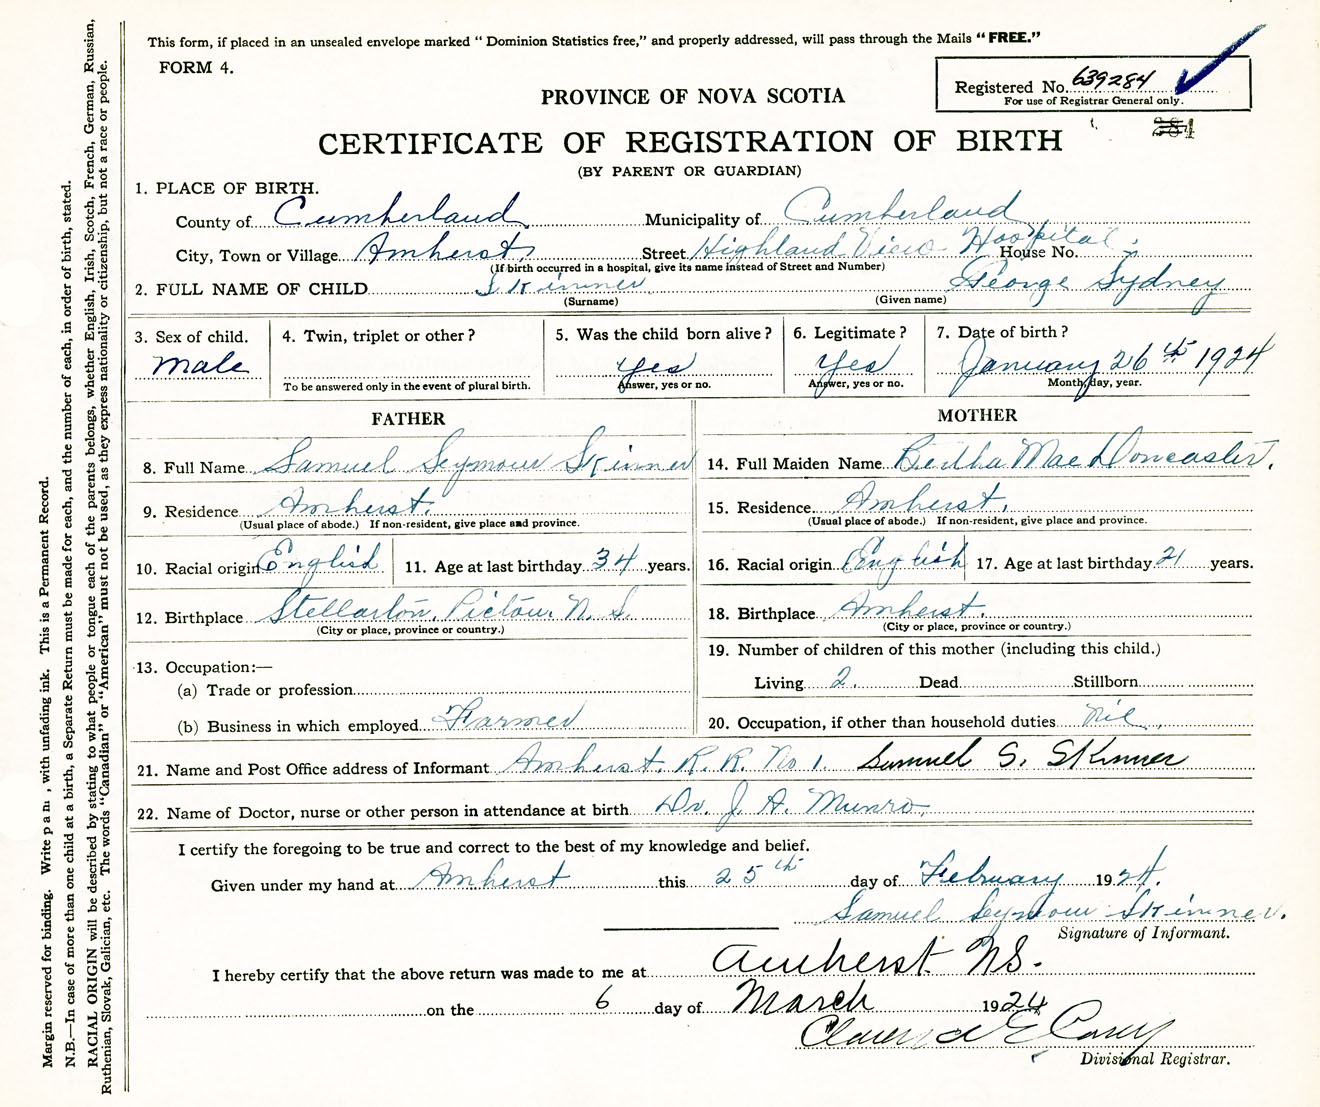 This form, if placed in an unsealed envelope marked " Dominion Statistics free," and properly addressed, will pass through the Mails " FREE."
FORM 4.
Registered No. 639284
For use of Registrar General only.
PROVINCE OF NOVA SCOTIA
CERTIFICATE OF REGISTRATION OF BIRTH
(BY PARENT OR GUARDIAN)
1. PLACE OF BIRTH.
County of Cumberland Municipality of Cumberland
City, Town or Village Amherst, Street Highland View Hospital, House No.
(If birth occurred in a hospital, give its name instead of Street and Number)
2. FULL NAME OF CHILD Skinner George Sydney
(Surname) (Given name)
3. Sex of child. 4. Twin, triplet or other? 5. Was the child born alive? 6. Legitimate? 7. Date of birth?
male yes yes January 26th 1924
To be answered only in the event of plural birth. Answer, yes or no. Answer, yes or no. Month, day, year.
FATHER
8. Full Name Samuel Seymour Skinner
9. Residence Amherst.
(Usual place of abode.) If non-resident, give place and province.
10. Racial origin English 11. Age at last birthday 34 years.
12. Birthplace Stellarton, Pictou N. S.
(City or place, province or country.)
13. Occupation:—
(a) Trade or profession
(b) Business in which employed Farmer
MOTHER
14. Full Maiden Name Bertha Mae Doncaster.
15. Residence Amherst.
(Usual place of abode.) If non-resident, give place and province.
16. Racial origin English 17. Age at last birthday 21 years.
18. Birthplace Amherst.
(City or place, province or country.)
19. Number of children of this mother (including this child.)
Living 2. Dead Stillborn
20. Occupation, if other than household duties nil.
21. Name and Post Office address of Informant Amherst. R. R. No 1. Samuel S. Skinner
22. Name of Doctor, nurse or other person in attendance at birth Dr. J. A. Munro,
I certify the foregoing to be true and correct to the best of my knowledge and belief.
Given under my hand at Amherst this 25th day of February 1924.
Samuel Seymour Skinner.
Signature of Informant.
I hereby certify that the above return was made to me at Amherst NS.
on the 6 day of March 1924
Clarence E Casey
Divisional Registrar.
Margin reserved for binding. Write pan, with unfading ink. This is a Permanent Record.
N.B.—In case of more than one child at a birth, a Separate Return must be made for each, and the number of each, in order of birth, stated.
RACIAL ORIGIN will be described by stating to what people or tongue each of the parents belongs, whether English, Irish, Scotch, French, German, Russian,
Ruthenian, Slovak, Galician, etc. The words "Canadian" or "American" must not be used, as they express nationality or citizenship, but not a race or people.